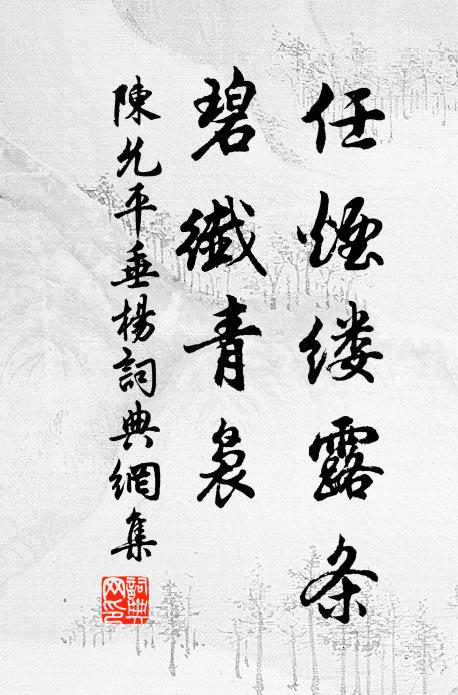 任煙缕露条
碧纖青袅
陳允平垂楊詞典網集
詞典网印